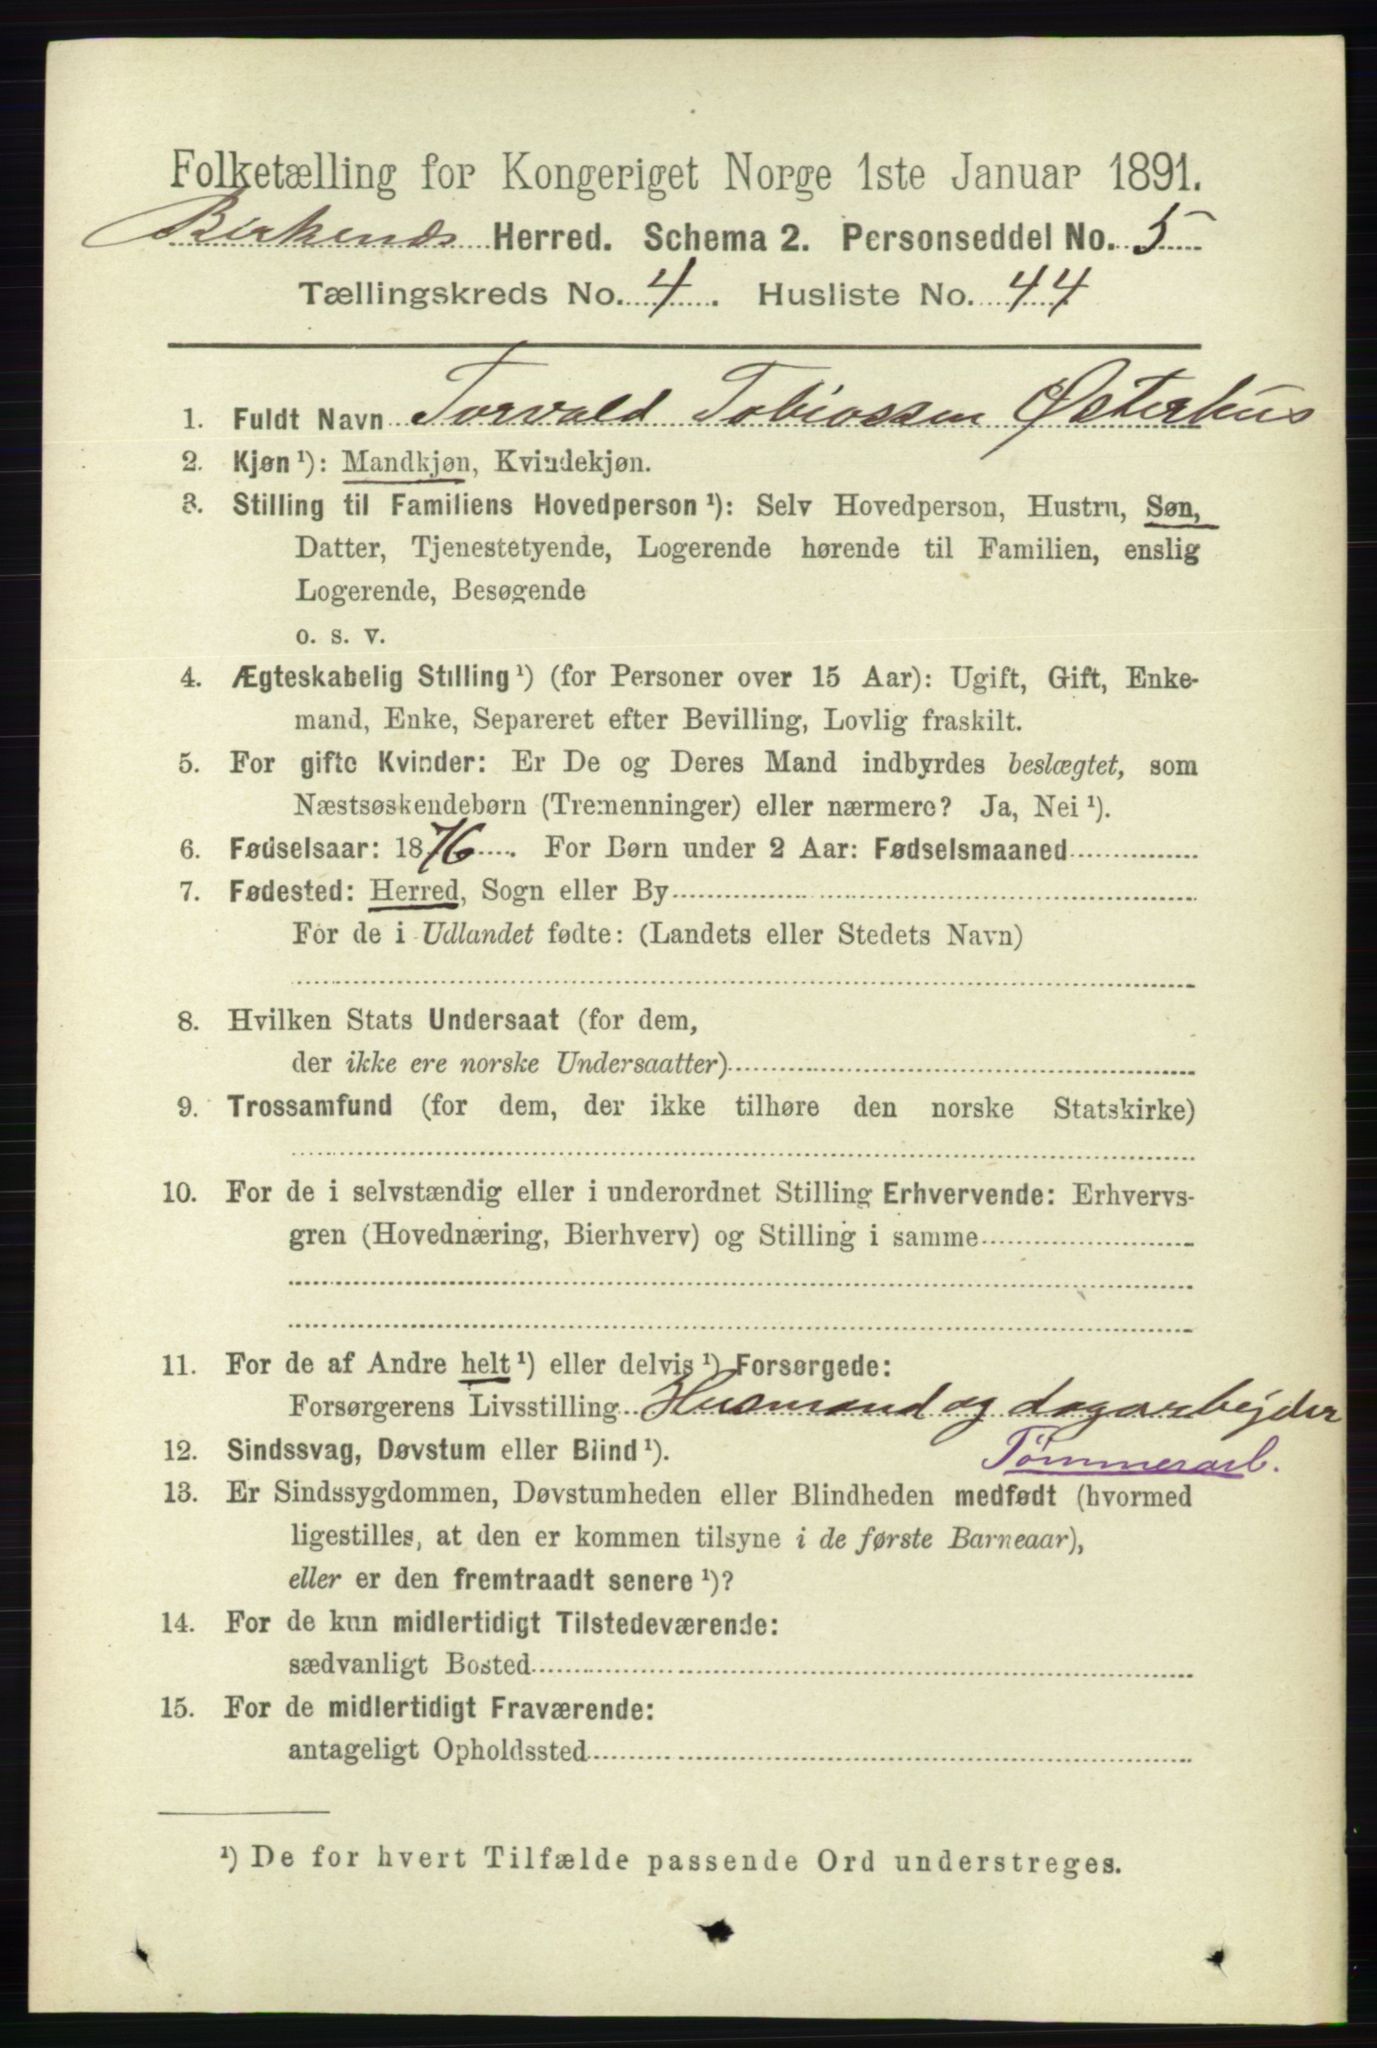 Folketælling for Kongeriget Norge 1ste Januar 1891.
Birkenes Herred. Schema 2. Personseddel No. 5
Tællingskreds No. 4. Husliste No. 44
1. Fuldt Navn Torvald Tobiassen Østerhus
2. Kjøn ¹): Mandkjøn, Kvindekjøn.
3. Stilling til Familiens Hovedperson ¹): Selv Hovedperson, Hustru, Søn,
Datter, Tjenestetyende, Logerende hørende til Familien, enslig
Logerende, Besøgende
o. s. v.
4. Ægteskabelig Stilling ¹) (for Personer over 15 Aar): Ugift, Gift, Enke-
mand, Enke, Separeret efter Bevilling, Lovlig fraskilt.
5. For gifte Kvinder: Er De og Deres Mand indbyrdes beslægtet, som
Næstsøskendebørn (Tremenninger) eller nærmere? Ja, Nei ¹).
6. Fødselsaar: 1876. For Børn under 2 Aar: Fødselsmaaned
7. Fødested: Herred, Sogn eller By
For de i Udlandet fødte: (Landets eller Stedets Navn)
8. Hvilken Stats Undersaat (for dem,
der ikke ere norske Undersaatter)
9. Trossamfund (for dem, der ikke tilhøre den norske Statskirke)
10. For de i selvstændig eller i underordnet Stilling Erhvervende: Erhvervs-
gren (Hovednæring, Bierhverv) og Stilling i samme
11. For de af Andre helt ¹) eller delvis ¹) Forsørgede:
Forsørgerens Livsstilling Husmand og dagarbejder
12. Sindssvag, Døvstum eller Blind ¹). Tømmerarb.
13. Er Sindssygdommen, Døvstumheden eller Blindheden medfødt (hvormed
ligestilles, at den er kommen tilsyne i de første Barneaar),
eller er den fremtraadt senere ¹)?
14. For de kun midlertidigt Tilstedeværende:
sædvanligt Bosted
15. For de midlertidigt Fraværende:
antageligt Opholdssted
¹) De for hvert Tilfælde passende Ord understreges.